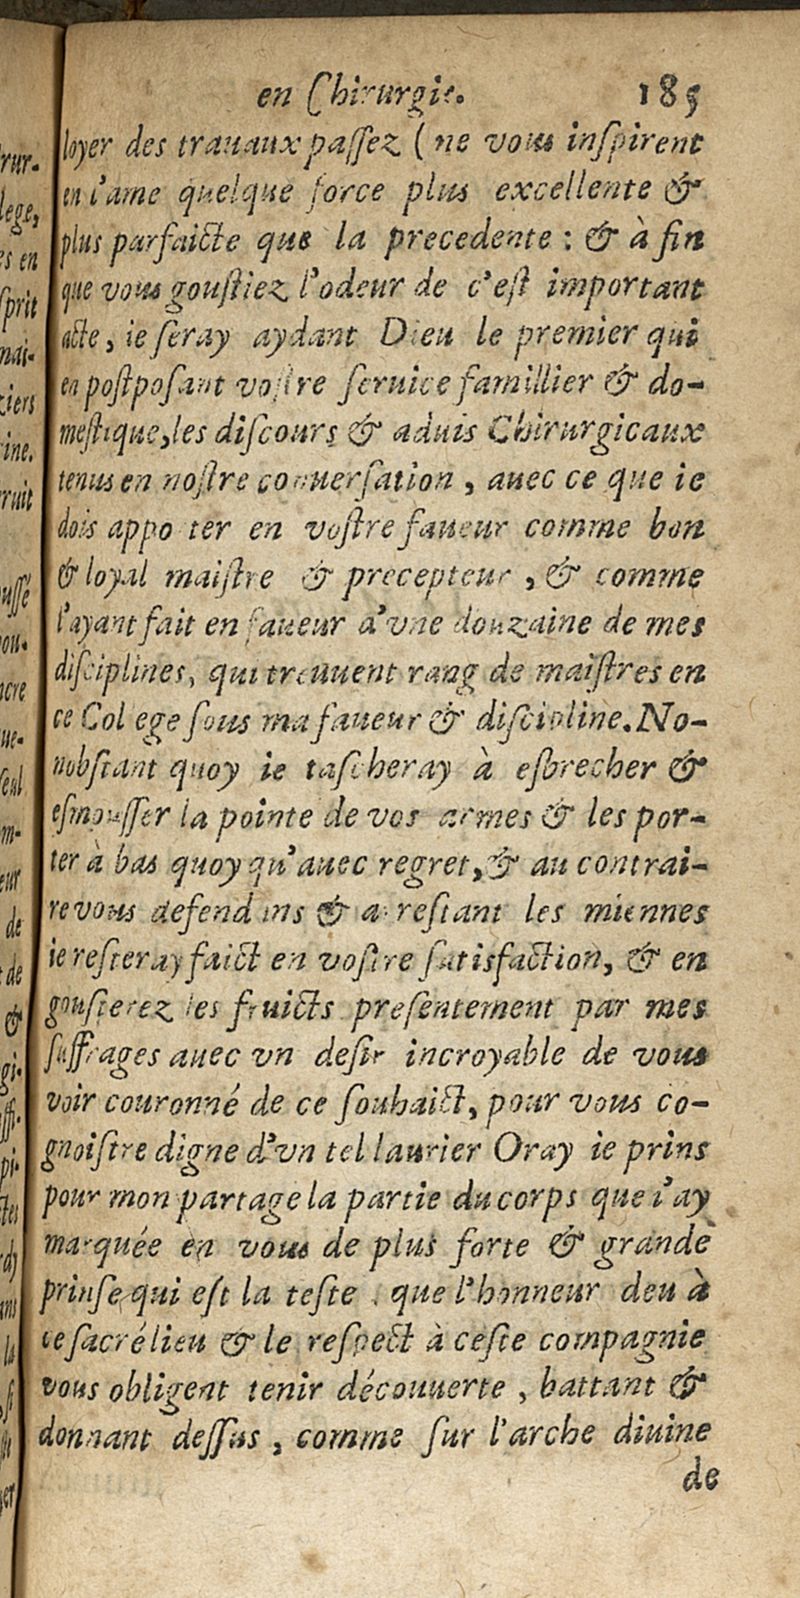 en Chirurgie. 185
loyer des trauaux passez (ne vous inſpirent
en l'ame quelque force plus excellente &
plus parfaicte que la precedente : & à fin
que vous gouſtiez l'odeur de c'eſt important
acte, ie ſeray aydant Dieu le premier qui
en poſtpoſant voſtre ſeruice famillier & do-
meſtique, les diſcours & aduis Chirurgicaux
tenus en noſtre conuerſation, auec ce que ie
dois appo ter en voſtre faueur comme bon
& loyal maiſtre & precepteur, & comme
l'ayant fait en faueur d'vne douzaine de mes
diſciplines, qui treuuent rang de maiſtres en
ce Col ege ſous ma faueur & diſcipline. No-
nobſtant quoy ie taſcheray à eſbrecher &
eſmouſſer la pointe de vos armes & les por-
ter à bas quoy qu'auec regret, & au contrai-
re vous defend ns & a reſtant les miennes
ie reſteray faict en voſtre ſatisfaction, & en
gouſterez les fruicts preſentement par mes
ſuffrages auec vn deſir incroyable de vous
voir couronné de ce ſouhaict, pour vous co-
gnoiſtre digne d'vn tel laurier Oray ie prins
pour mon partage la partie du corps que i'ay
marquée en vous de plus forte & grande
prinſe qui eſt la teſte que l'honneur deu à
ce ſacré lieu & le reſpect à ceſte compagnie
vous obligent tenir découuerte, battant &
donnant deſſus, comme ſur l'arche diuine
de
rur-
lege,
es en
ſprit
nai-
ziers
ine.
ruit
uſſé
ou-
cre
ue-
ſeul
m-
eur
de
de
&
gi-
ſſi-
pi-